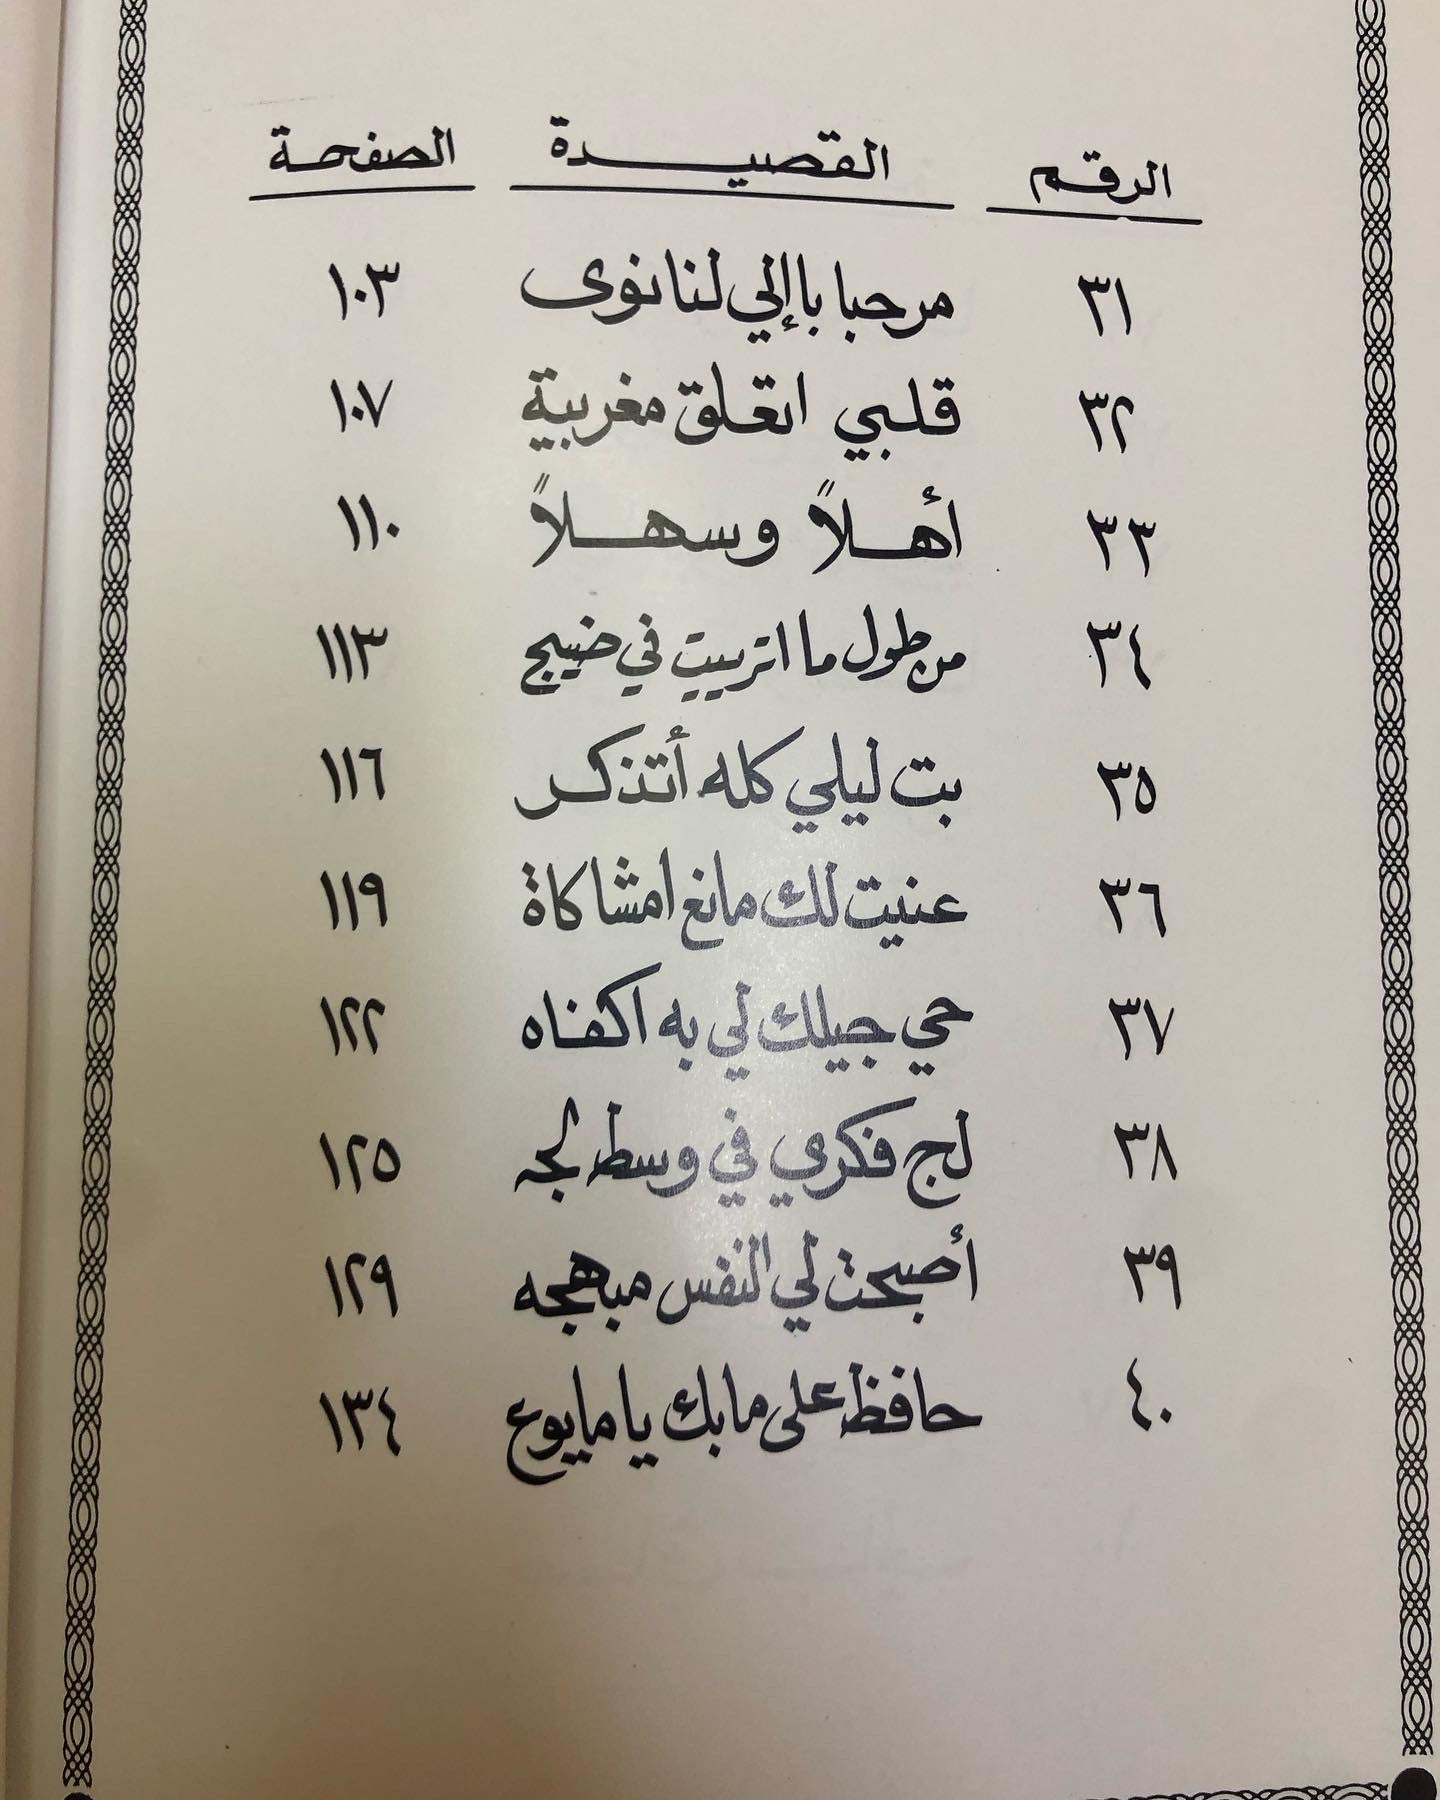 الرقم القصيدة الصفحة
٣١ مرحبا باإلي لنا نوى ١٠٣
٣٢ قلبي اتعلق مغربية ١٠٧
٣٣ أهلاً وسهلاً ١١٠
٣٤ من طول ما اتربيت في ضييج ١١٣
٣٥ بت ليلي كله أتذكر ١١٦
٣٦ عنيت لك مانع امشاكاة ١١٩
٣٧ حي جيلك لي به اكفاه ١٢٢
٣٨ لج فكري في وسط لجه ١٢٥
٣٩ أصبحت لي النفس مبهجه ١٢٩
٤٠ حافظ على ما بك يا مايوع ١٣٤